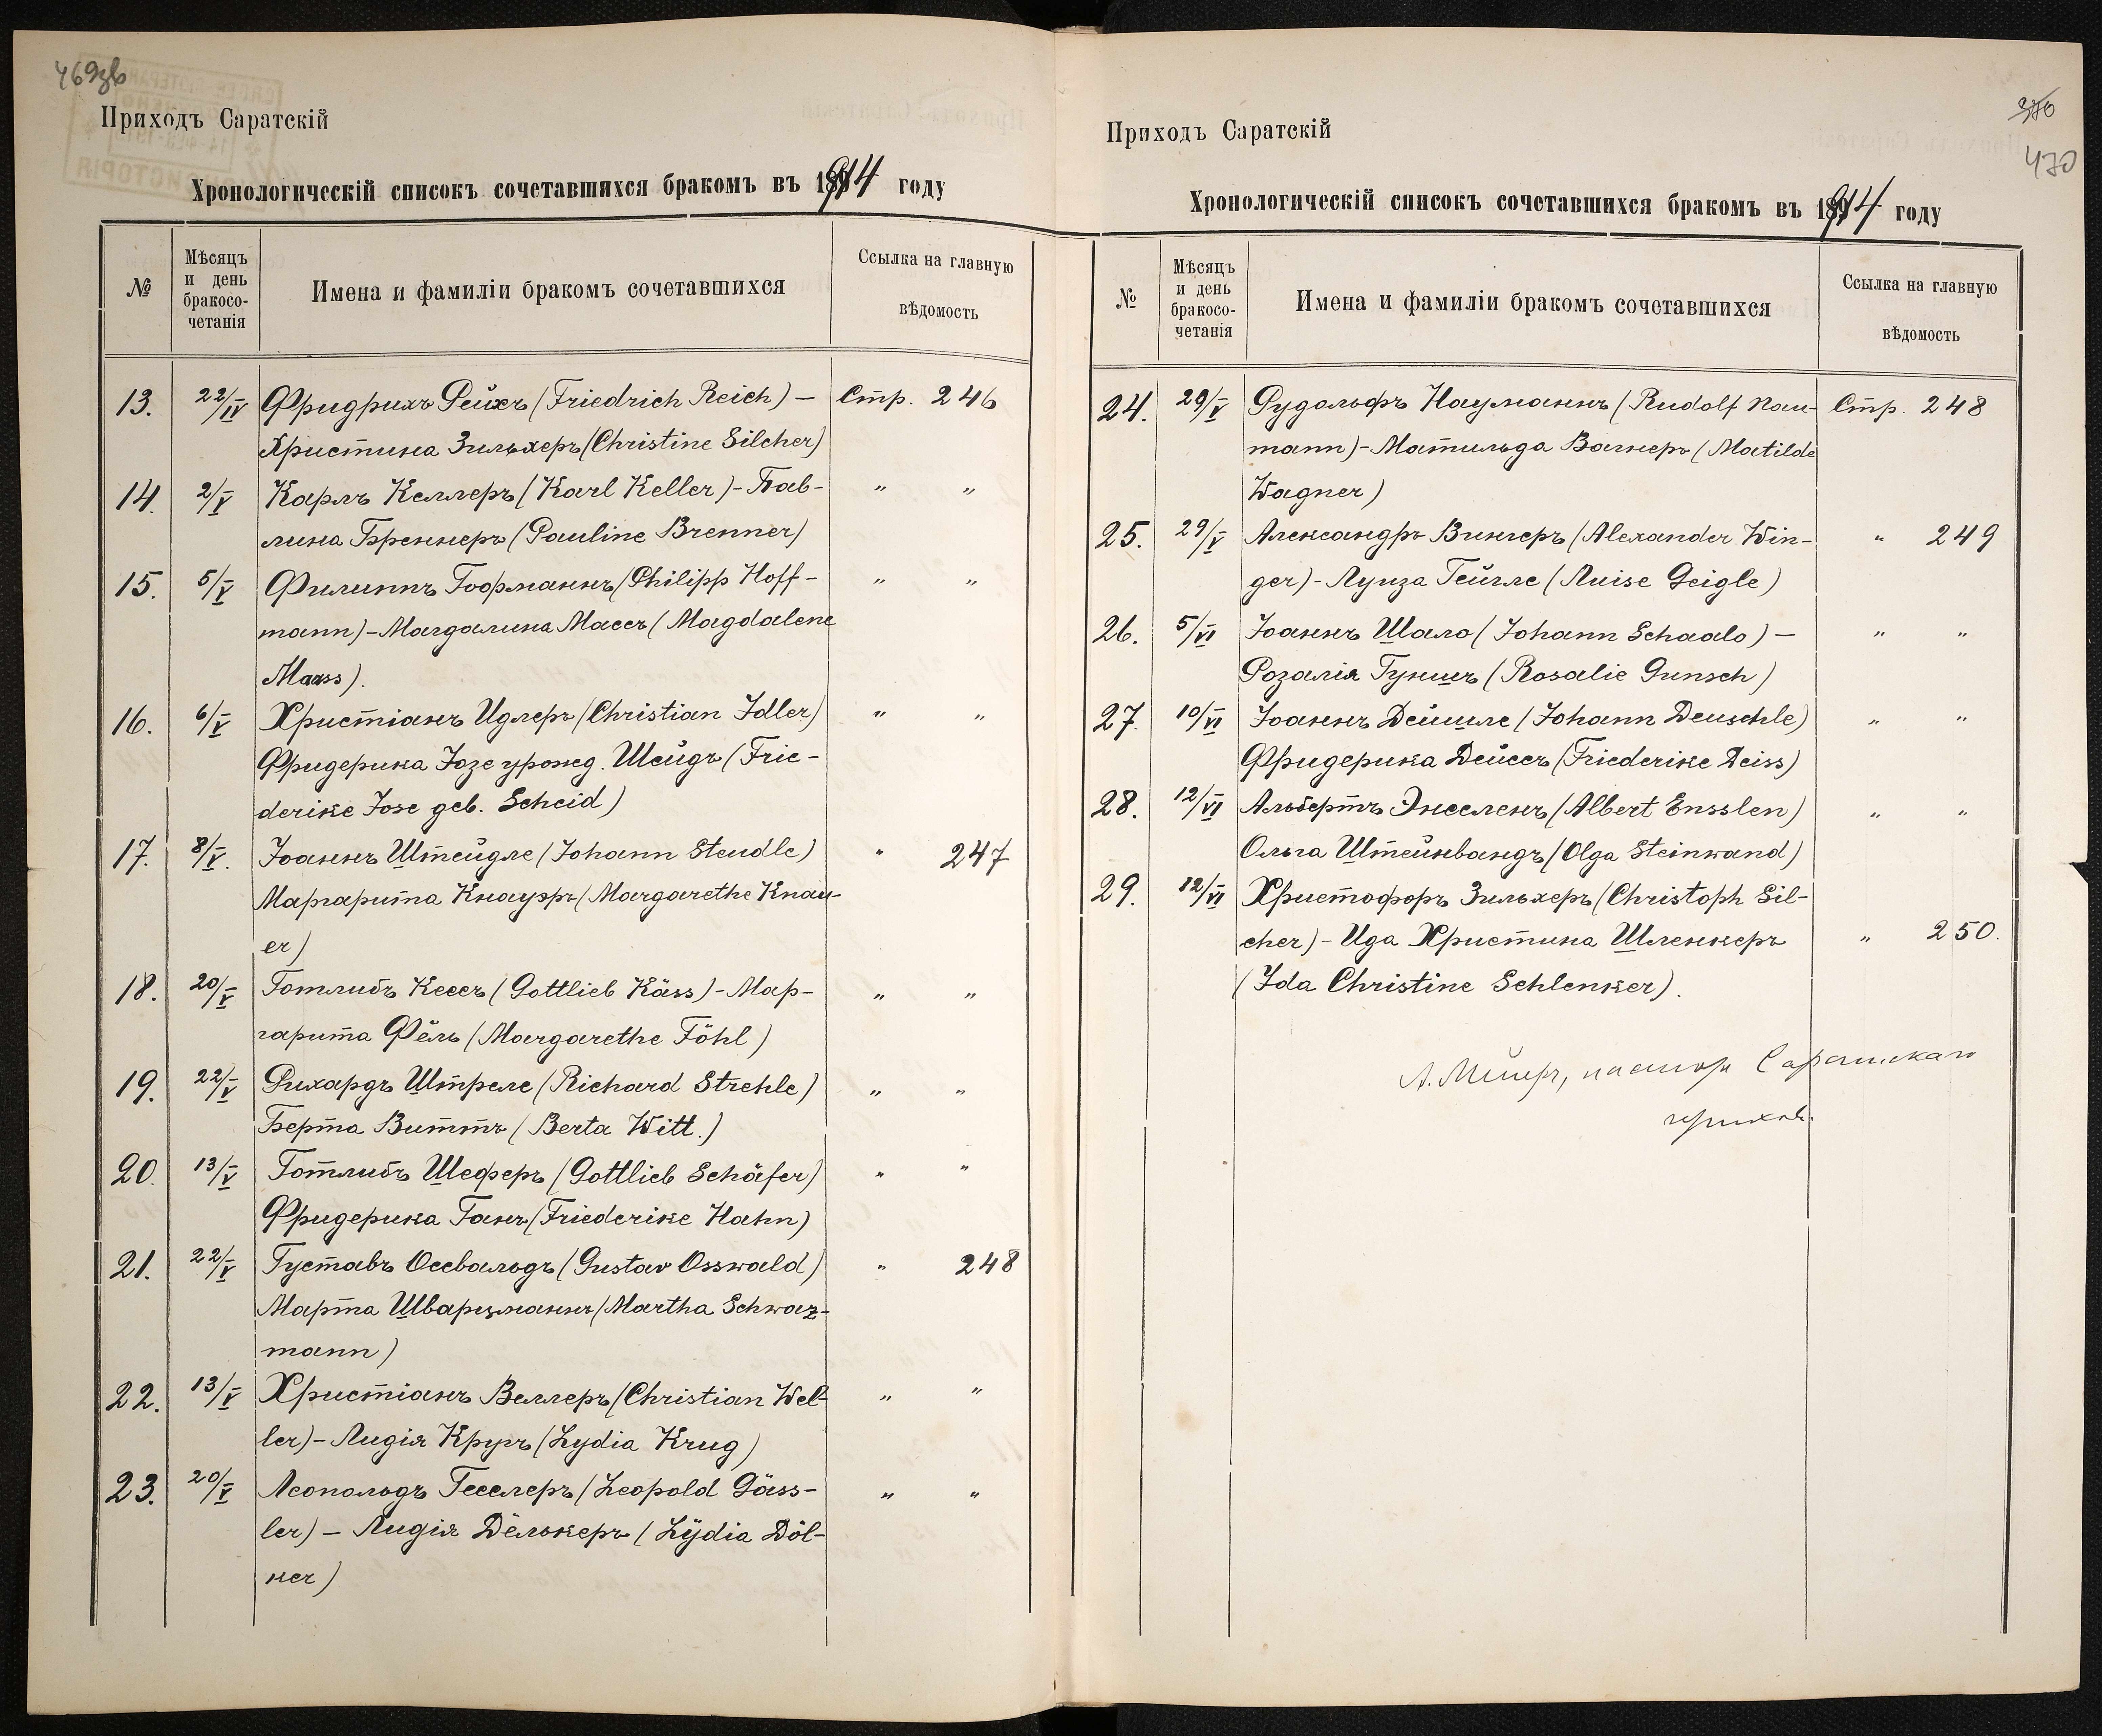 469зв
Приходъ Саратскій
Хронологическій списокъ сочетавшихся бракомъ въ 1914 году
№
Мѣсяцъ
и день
бракосо-
четанія
Имена и фамиліи бракомъ сочетавшихся
Ссылка на главную
вѣдомость
13. 22/IV Фридрихъ Рейхъ (Friedrich Reich) – Стр. 246
Христина Зильхеръ (Christine Silcher)
14. 2/V Карлъ Келлеръ (Karl Keller) - Пав- " "
лина Бреннеръ (Pauline Brenner)
15. 5/V Филиппъ Гофманнъ (Philipp Hoff- " "
mann) - Магдалина Массъ (Magdalene
Maass).
16. 6/V Христіанъ Идлеръ (Christian Idler) " "
Фридерика Іозе урожд. Шейдъ (Frie-
derike Jose geb. Scheid)
17. 8/V. Іоаннъ Штейдле (Johann Steudle) " 247
Маргарита Кнауэръ (Margarethe Knau-
er)
18. 20/V Готлибъ Кессъ (Gottlieb Käss) - Мар- " "
гарита Фёль (Margarethe Föhl)
19. 22/V Рихардъ Штреле (Richard Strehle) " "
Берта Виттъ (Berta Witt.)
20. 13/V Готлибъ Шеферъ (Gottlieb Schäfer) " "
Фридерика Ганъ (Friederike Hahn)
21. 22/V Густавъ Оссвальдъ (Gustav Osswald) " 248
Марта Шварцманнъ (Martha Schwaz-
mann)
22. 13/V Христіанъ Веллеръ (Christian Wel- " "
ler) - Лидія Кругъ (Lydia Krug)
23. 20/V Леопольдъ Гесслеръ (Leopold Gäss- " "
ler) – Лидія Дёлькеръ (Lydia Döl-
ker)
370
470
Приходъ Саратскій
Хронологическій списокъ сочетавшихся бракомъ въ 1914 году
№
Мѣсяцъ
и день
бракосо-
четанія
Имена и фамиліи бракомъ сочетавшихся
Ссылка на главную
вѣдомость
24. 29/V Рудольфъ Науманнъ (Rudolf Nau- Стр. 248
mann) - Матильда Вагнеръ (Matilde
Wagner)
25. 29/V Александръ Вингеръ (Alexander Win- " 249
ger) - Луиза Гейгле (Luise Geigle)
26. 5/VI Іоаннъ Шало (Johann Schaalo) – " "
Розалія Гуншъ (Rosalie Gunsch)
27. 10/VI Іоаннъ Дейшле (Johann Deuschle) " "
Фридерика Дейссъ (Friederike Deiss)
28. 12/VI Альбертъ Энсленъ (Albert Ensslen) " "
Ольга Штейнвандъ (Olga Steinwand)
29. 12/VI Христофоръ Зильхеръ (Christoph Sil-
cher) - Ида Христина Шленкеръ " 250.
(Ida Christine Schlenker).
А. Мейеръ, пасторъ Саратскаго
прихода.